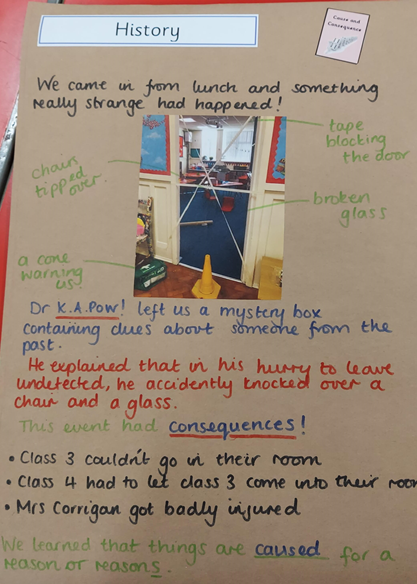 History
Cause and
Consequence
We came in from lunch and something
really strange had happened!
tape
blocking
the door
chairs
tipped
over.
broken
glass
a cone
warning
us
Dr K.A.Pow! left us a mystery box
containing clues about someone from the
past.
He explained that in his hurry to leave
undetected, he accidently knocked over a
chair and a glass.
This event had consequences!
• Class 3 couldn't go in their room
• Class 4 had to let class 3 come into their room
• Mrs Corrigan got badly injured
We learned that things are caused for a
reason or reasons.